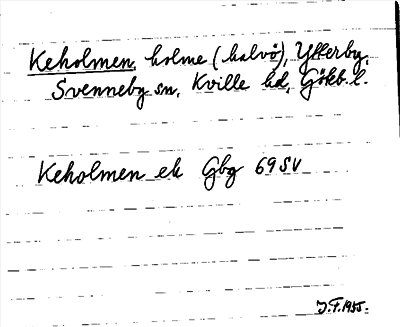 Keholmen, holme (halvö), Ytterby,
Svenneby sn, Kville hd, Götb. l.
Keholmen ek Gbg 69 SV
J.F. 1955.